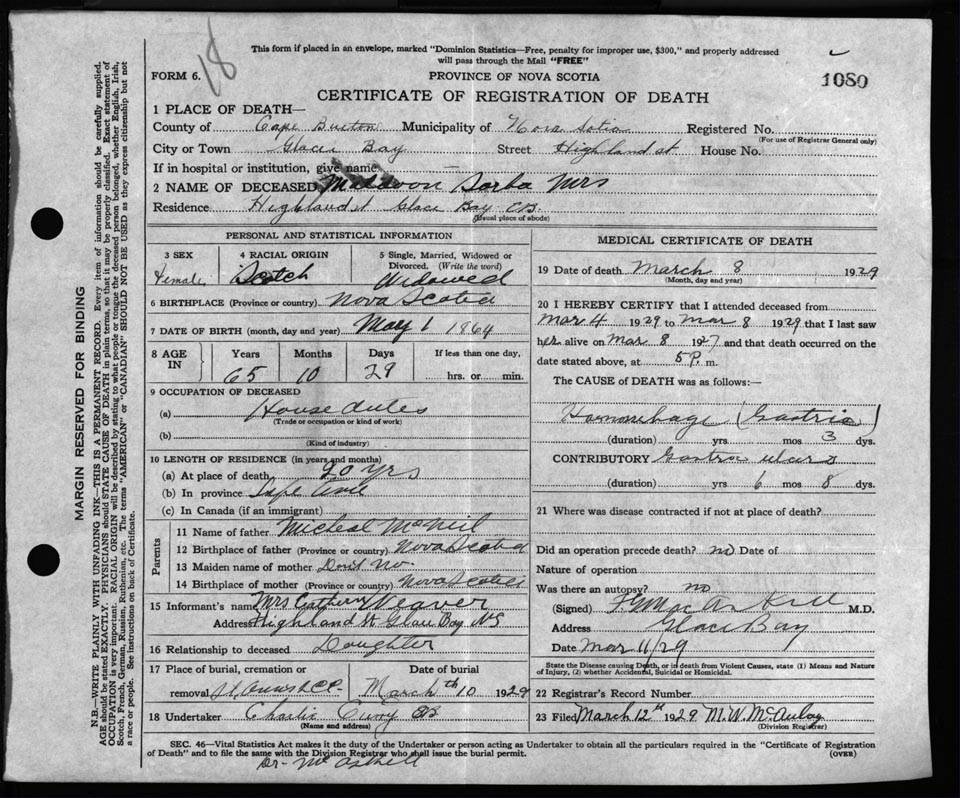 18
This form if placed in an envelope, marked "Dominion Statistics—Free, penalty for improper use, $300," and properly addressed
will pass through the Mail "FREE"
FORM 6.
PROVINCE OF NOVA SCOTIA
1080
CERTIFICATE OF REGISTRATION OF DEATH
1 PLACE OF DEATH—
County of Cape Breton Municipality of Nova Scotia Registered No.
(For use of Registrar General only)
City or Town Glace Bay Street Highland st House No.
If in hospital or institution, give name
2 NAME OF DECEASED Sarha Mrs
Residence Highland st Glace Bay CB
(Usual place of abode)
PERSONAL AND STATISTICAL INFORMATION
3 SEX Female
4 RACIAL ORIGIN Scotch
5 Single, Married, Widowed or Divorced. (Write the word) Widowed
6 BIRTHPLACE (Province or country) Nova Scotia
7 DATE OF BIRTH (month, day and year) May 1 1864
8 AGE IN Years Months Days If less than one day,
65 10 29 hrs. or min.
9 OCCUPATION OF DECEASED
(a) House duties
(Trade or occupation or kind of work)
(b)
(Kind of industry)
10 LENGTH OF RESIDENCE (in years and months)
(a) At place of death 20 yrs
(b) In province Life time
(c) In Canada (if an immigrant)
Parents
11 Name of father Micheal McNeil
12 Birthplace of father (Province or country) Nova Scotia
13 Maiden name of mother Dont No
14 Birthplace of mother (Province or country) Nova Scotia
15 Informant's name Mrs Cathern Weaver
Address Highland St Glace Bay NS
16 Relationship to deceased Daughter
17 Place of burial, cremation or removal
Date of burial
March 10th 1929
18 Undertaker Charlie Curry CB
(Name and address)
MEDICAL CERTIFICATE OF DEATH
19 Date of death March 8 1929
(Month, day and year)
20 I HEREBY CERTIFY that I attended deceased from
Mar 4 1929 to Mar 8 1929 that I last saw
her alive on Mar 8 1927 and that death occurred on the
date stated above, at 5 P. m.
The CAUSE OF DEATH was as follows:—
Hemorrhage (Gastric)
(duration) yrs mos 3 dys.
CONTRIBUTORY Gastric ulcers
(duration) yrs 6 mos 8 dys.
21 Where was disease contracted if not at place of death?
Did an operation precede death? no Date of
Nature of operation
Was there an autopsy? no
(Signed) M.D.
Address Glace Bay
Date Mar 11/29
State the Disease causing Death, or in death from Violent Causes, state (1) Means and Nature
of Injury, (2) whether Accidental, Suicidal or Homicidal.
22 Registrar's Record Number
23 Filed March 12th 1929 M.W. McAulay
(Division Registrar)
SEC. 46—Vital Statistics Act makes it the duty of the Undertaker or person acting as Undertaker to obtain all the particulars required in the "Certificate of Registration
of Death" and to file the same with the Division Registrar who shall issue the burial permit.
(OVER)
Dr. McAskell
MARGIN RESERVED FOR BINDING
N.B.—WRITE PLAINLY WITH UNFADING INK—THIS IS A PERMANENT RECORD. Every item of information should be carefully supplied.
AGE should be stated EXACTLY. PHYSICIANS should STATE CAUSE OF DEATH in plain terms, so that it may be properly classified. Exact statement of
OCCUPATION is very important. RACIAL ORIGIN will be described by stating to what people or tongue the deceased person belonged, whether English, Irish,
Scotch, French, German, Russian, Ruthenian, etc. The terms "AMERICAN" or "CANADIAN" SHOULD NOT BE USED as they express citizenship but not
a race or people. See instructions on back of Certificate.